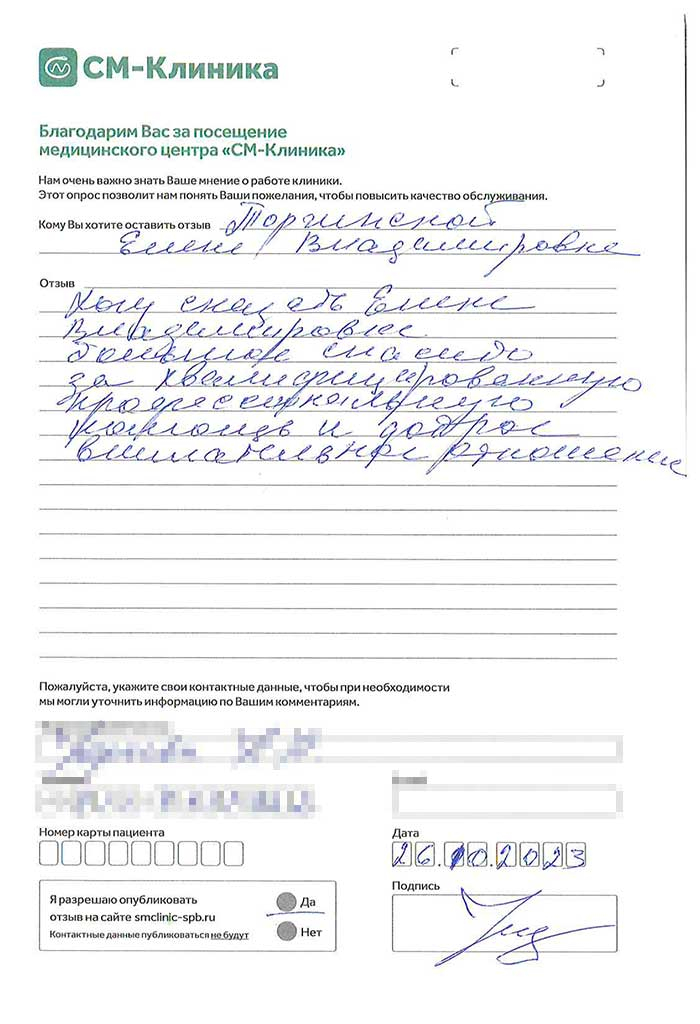 СМ-Клиника
Благодарим Вас за посещение
медицинского центра «СМ-Клиника»
Нам очень важно знать Ваше мнение о работе клиники.
Этот опрос позволит нам понять Ваши пожелания, чтобы повысить качество обслуживания.
Кому Вы хотите оставить отзыв Торгинской
Елене Владимировне
Отзыв
Хочу сказать Елене
Владимировне
большое спасибо
за квалифицированную
профессиональную
помощь и доброе
внимательное отношение
Пожалуйста, укажите свои контактные данные, чтобы при необходимости
мы могли уточнить информацию по Вашим комментариям.
Номер карты пациента
Дата
26.10.2023
Я разрешаю опубликовать
отзыв на сайте smclinic-spb.ru
Контактные данные публиковаться не будут
Да
Нет
Подпись